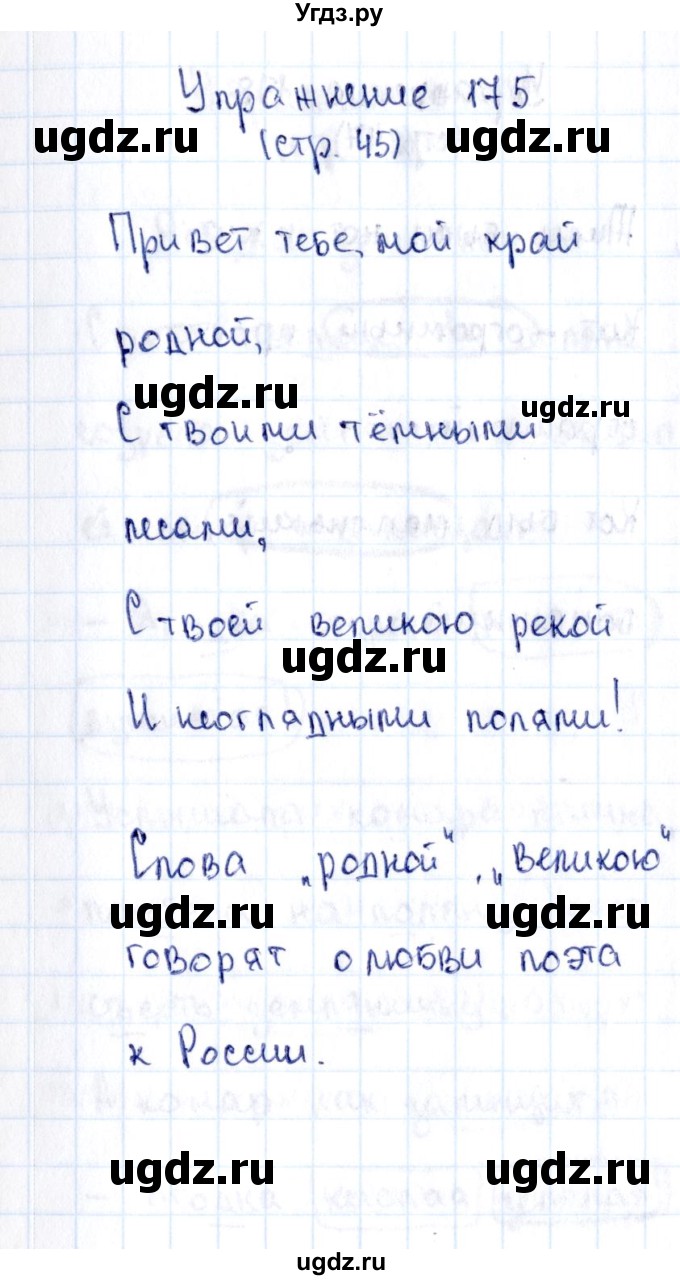 Угдз.ру
Упражнение 175
ugdz.ru (стр. 45) ugdz.ru
Привет тебе, мой край
родной,
ugdz.ru ugdz.ru
С твоими тёмными
лесами,
С твоей великою рекой
ugdz.ru
И неоглядными полями!
Слова „родной“, „великою“
ugdz.ru ugdz.ru
говорят о любви поэта
к России.
ugdz.ru ugdz.ru